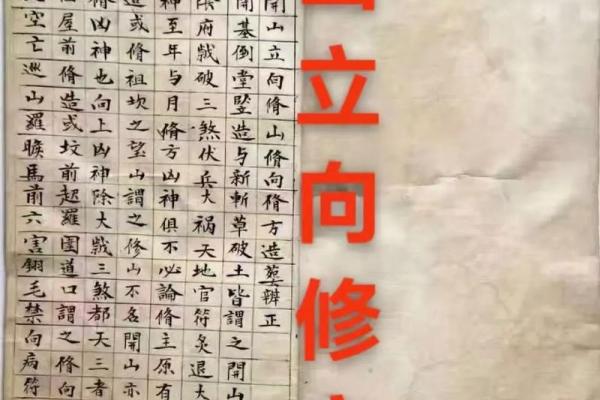 山立向修
開山立向脩山脩向脩方造葬辨正
開基倒堂竪造与新斬草破土皆謂之開山
陰府歲破三煞伏兵大禍天地官符炙退大
神至年与月脩方凶神俱不必論脩主原有
造或脩祖坟之望山謂之修山不名開山亦
脩凶神也向上凶神除大歲三煞都天三者
屋前脩造或坟前超羅圍道口謂之脩向
空亡巡山羅睺馬前六害翎毛禁向病符